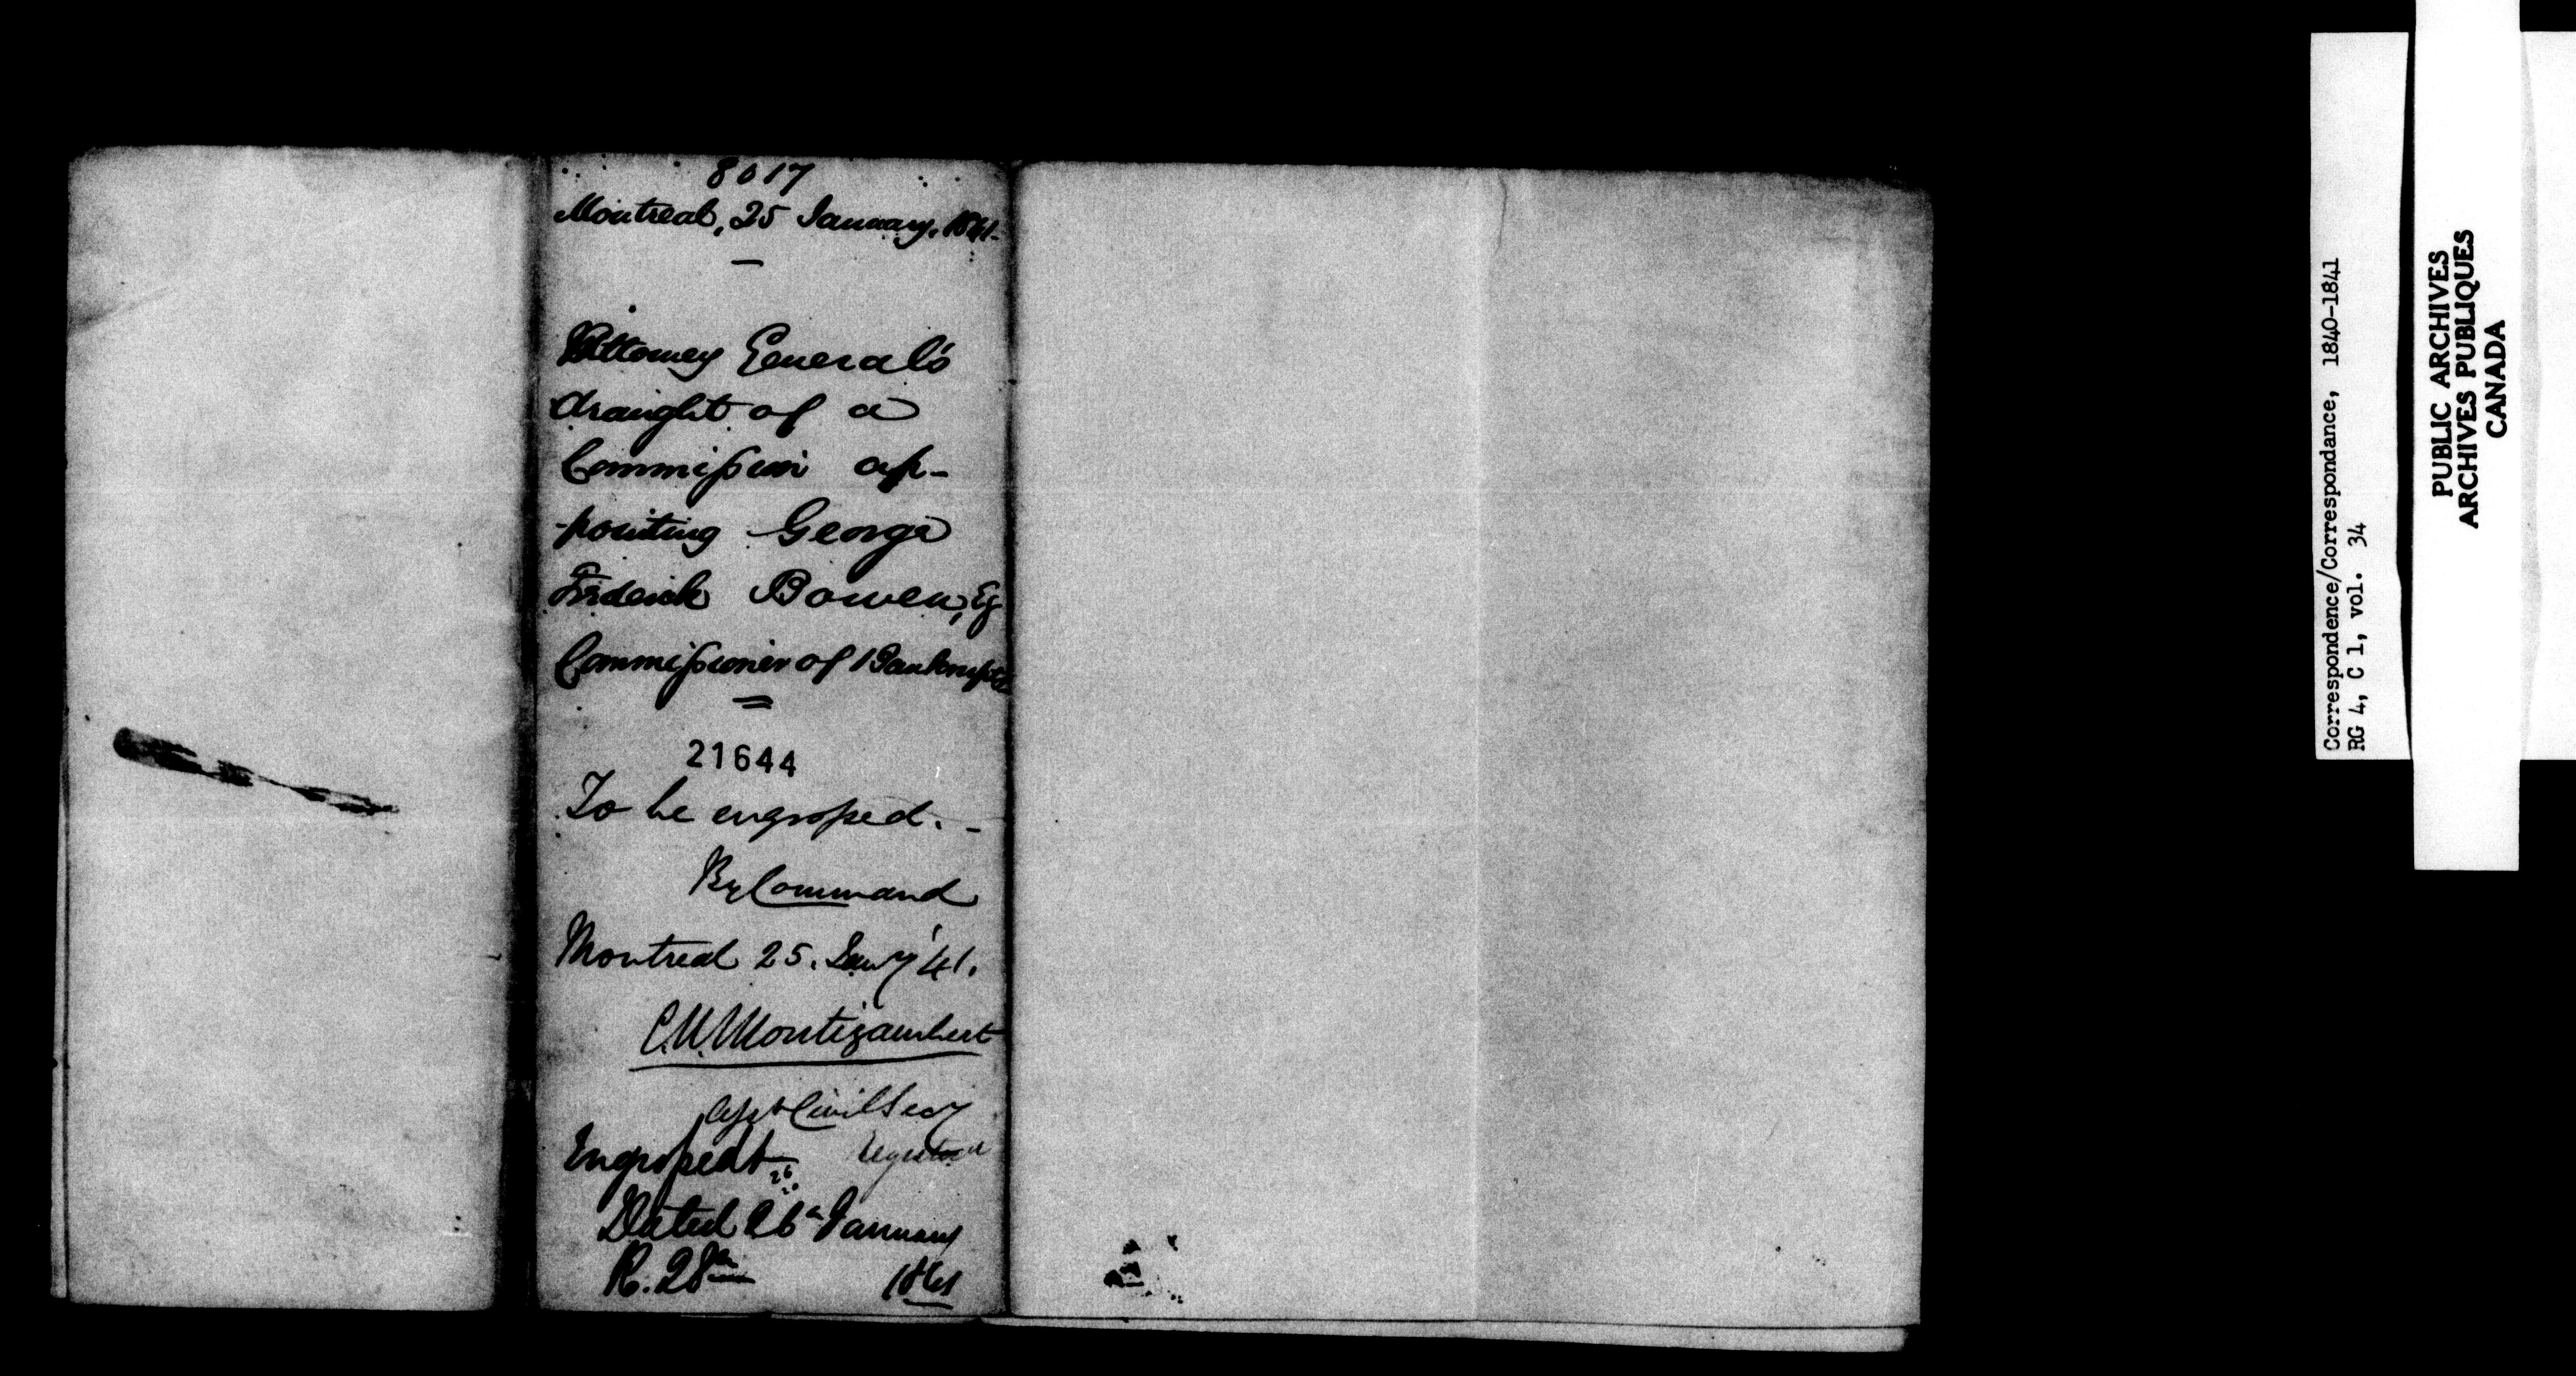 8017
Montreal, 25 January, 1841-
Attorney General's
draught of a
Commission ap-
-pointing George
Frederick Bowen, Esq
Commissioner of Bankrupts
21644
To be engrossed. -
By Command
Montreal 25. Jany '41.
C.W. Montizambert
Asst Civil Secy
Engrossed
Registered
Dated 26th January
R. 28th 1841
Correspondence/Correspondance, 1840-1841
RG 4, C 1, vol. 34
PUBLIC ARCHIVES
ARCHIVES PUBLIQUES
CANADA